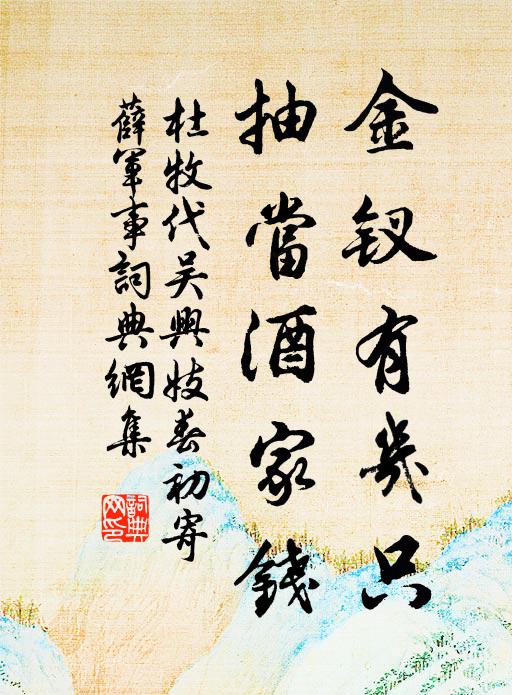 金釵有幾只
抽當酒家錢
杜牧代吳興妓春初寄
薛軍事詞典網集
詞典網印